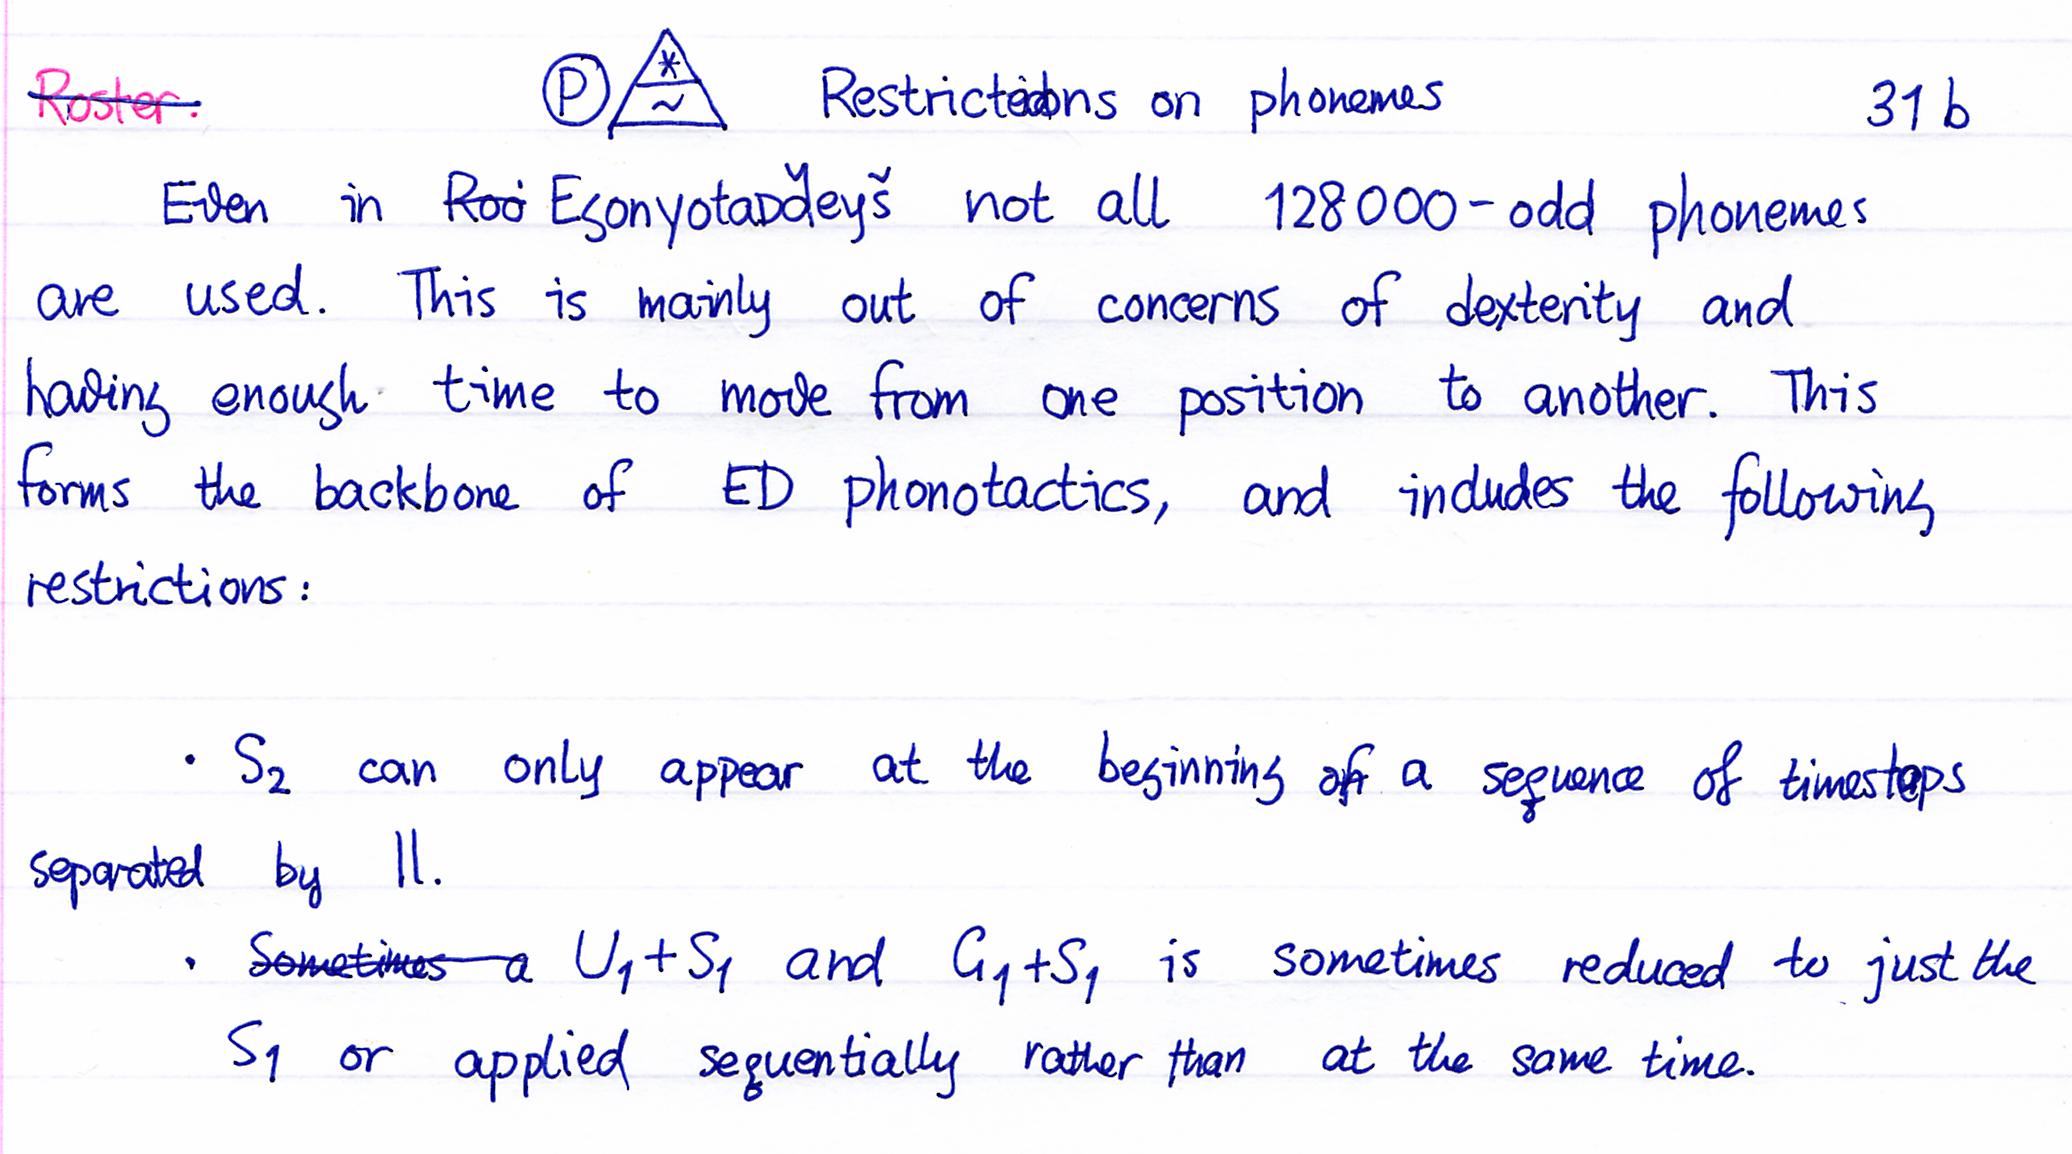 Roster. Ⓟ * ~ Restrictions on phonemes 31b
Even in Roo Eȿonyotaᴅďeyš not all 128000-odd phonemes
are used. This is mainly out of concerns of dexterity and
having enough time to move from one position to another. This
forms the backbone of ED phonotactics, and includes the following
restrictions:
· S₂ can only appear at the beginning of a sequence of timesteps
separated by ||.
· Sometimes a U₁+S₁ and G₁+S₁ is sometimes reduced to just the
S₁ or applied sequentially rather than at the same time.